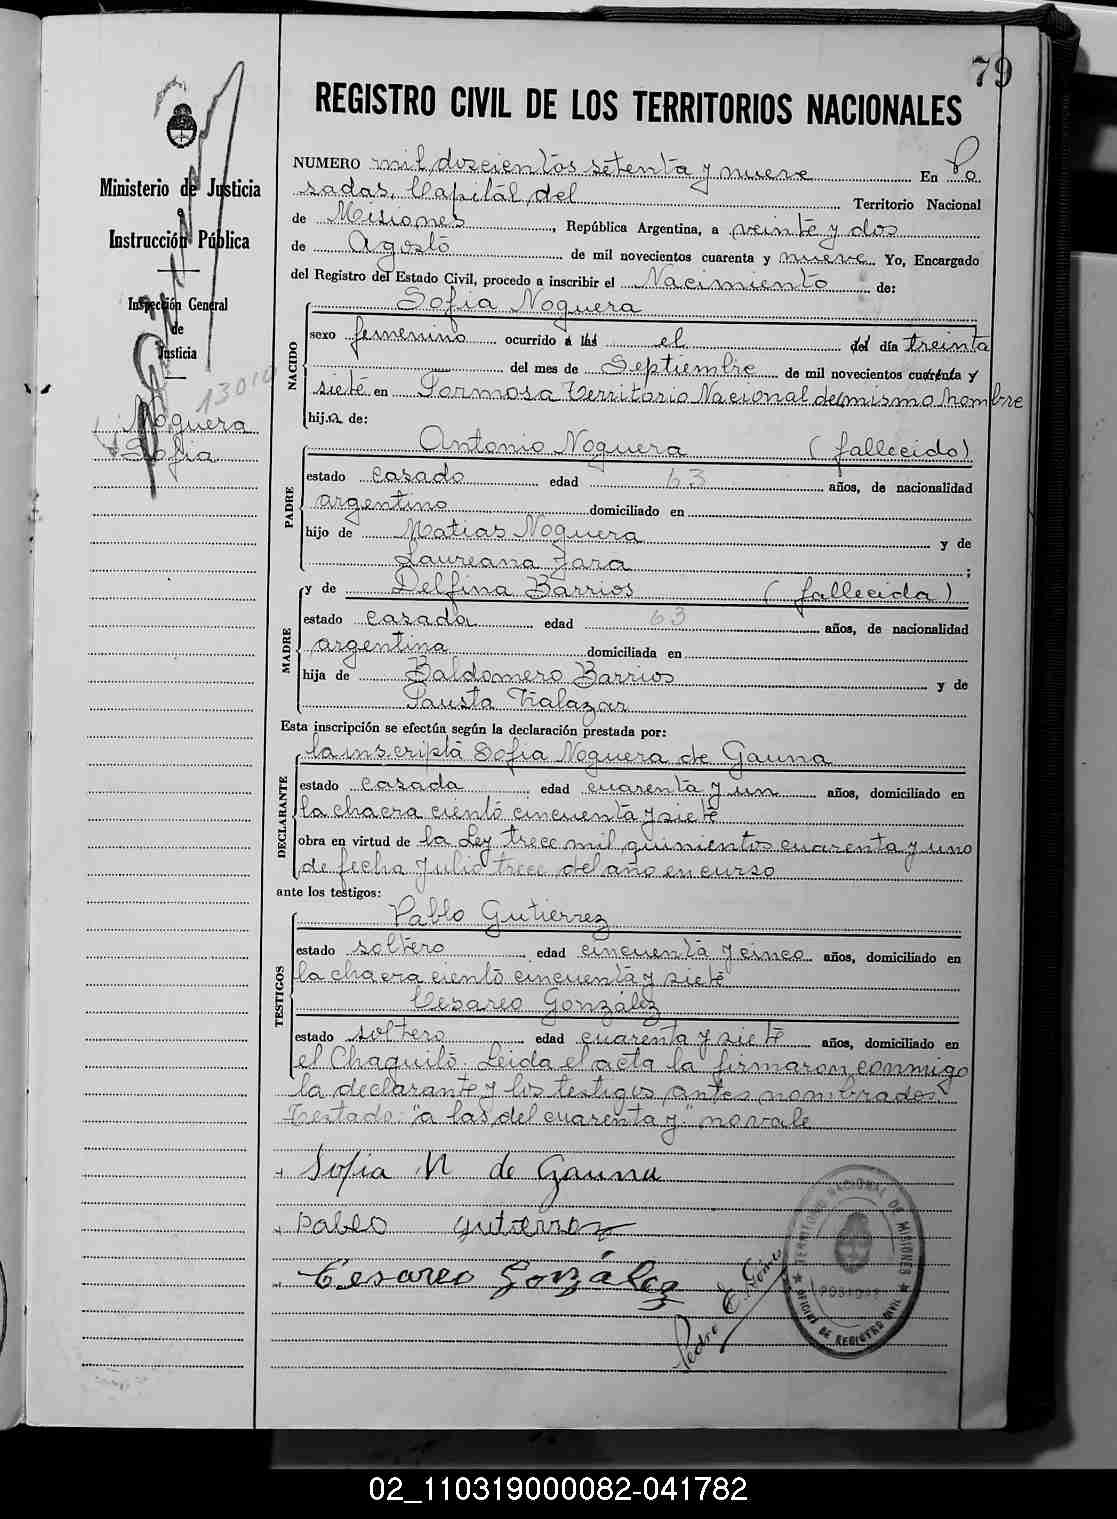 79
REGISTRO CIVIL DE LOS TERRITORIOS NACIONALES
Ministerio de Justicia
Instrucción Pública
Inspección General
de
Justicia
13010
Noguera
Sofia
NUMERO mil doscientos setenta y nueve En Po
sadas, Capital del Territorio Nacional
de Misiones, República Argentina, a veinte y dos
de Agosto de mil novecientos cuarenta y nueve Yo, Encargado
del Registro del Estado Civil, procedo a inscribir el Nacimiento de:
NACIDO
Sofia Noguera
sexo femenino ocurrido a las el del día treinta
del mes de Septiembre de mil novecientos cuarenta y
siete en Formosa Territorio Nacional del mismo nombre
hija de:
PADRE
Antonio Noguera (fallecido)
estado casado edad 63 años, de nacionalidad
argentino domiciliado en
hijo de Matias Noguera y de
Laureana Jara ;
MADRE
y de Delfina Barrios (fallecida)
estado casada edad 63 años, de nacionalidad
argentina domiciliada en
hija de Baldomero Barrios y de
Fausta
Esta inscripción se efectúa según la declaración prestada por:
DECLARANTE
la inscripta Sofia Noguera de Gauna
estado casada edad cuarenta y un años, domiciliado en
la chacra ciento cincuenta y siete
obra en virtud de la Ley trece mil quinientos cuarenta y uno
de fecha Julio trece del año en curso
ante los testigos:
TESTIGOS
Pablo Gutierrez
estado soltero edad cincuenta y cinco años, domiciliado en
la chacra ciento cincuenta y siete
Cesareo González
estado soltero edad cuarenta y siete años, domiciliado en
el Chaquito. Leida el acta la firmaron conmigo
la declarante y los testigos antes nombrados
Testado: "a las del cuarenta y" no vale
Sofia N de Gauna
Pablo Gutierrez
Cesareo González
Pedro E. Gómez
TERRITORIO NACIONAL DE MISIONES
POSADAS
OFICINA DE REGISTRO CIVIL
02_110319000082-041782